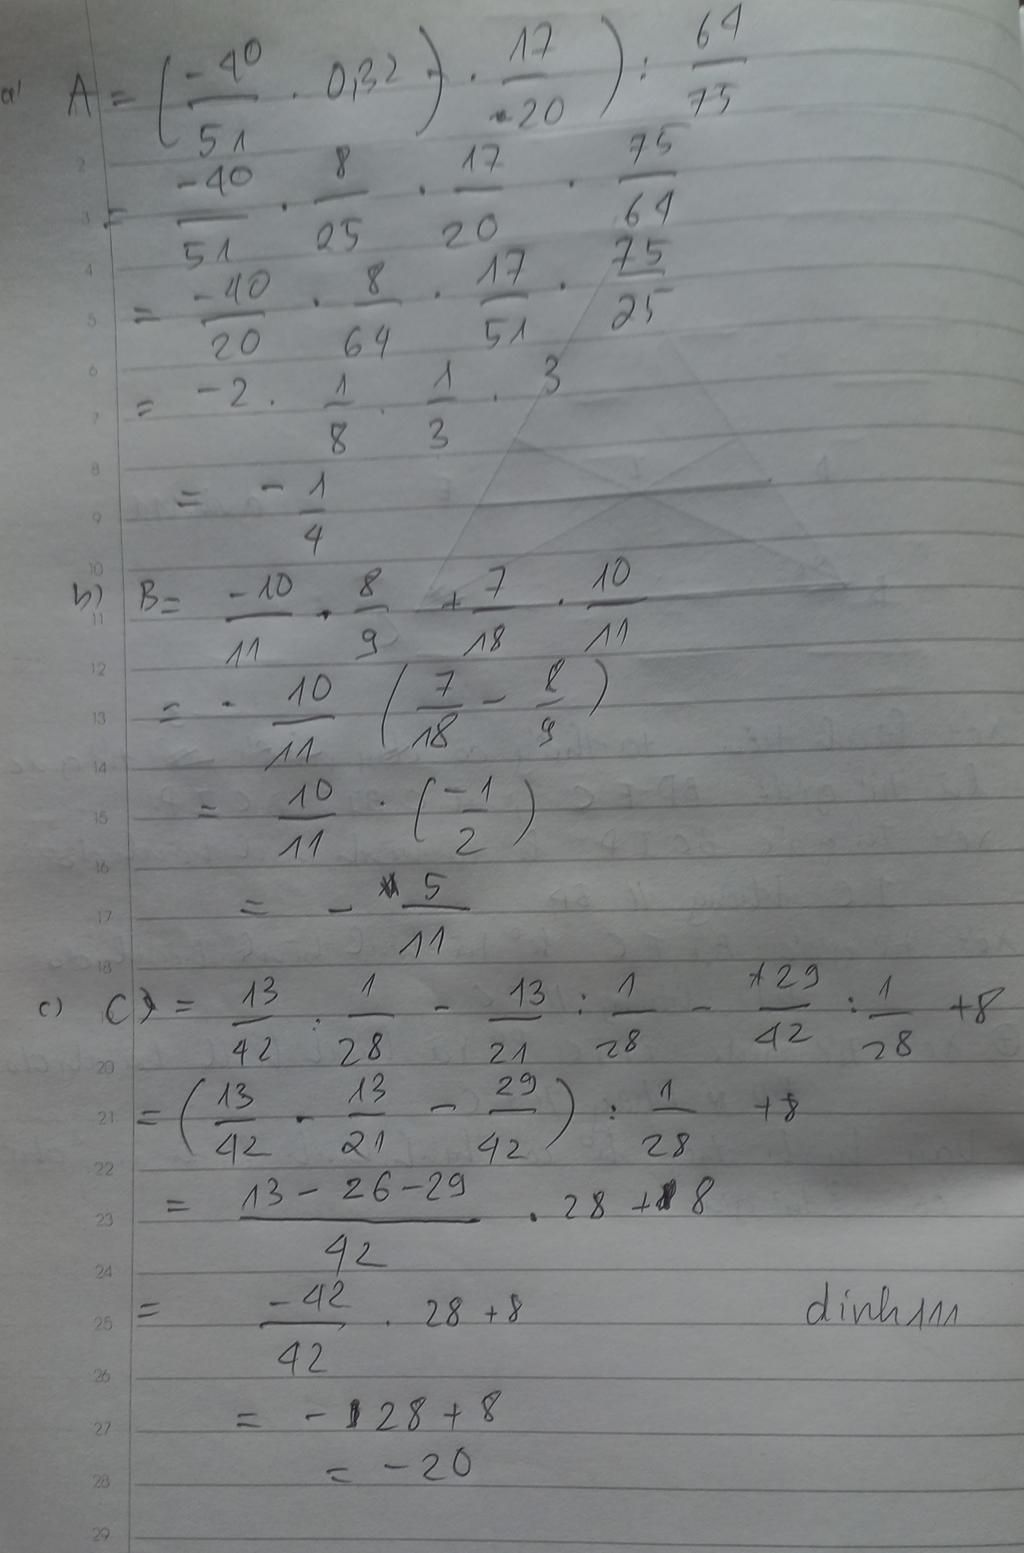 a) A = (-40/51 . 0,32) . 17/20) : 64/75
= -40/51 . 8/25 . 17/20 . 75/64
= -40/20 . 8/64 . 17/51 . 75/25
= -2 . 1/8 . 1/3 . 3
= - 1/4
b) B = -10/11 . 8/9 + 7/18 . 10/11
= - 10/11 (7/18 - 8/9)
= 10/11 . (-1/2)
= - 5/11
c) C = 13/42 : 1/28 - 13/21 : 1/28 - 29/42 : 1/28 + 8
= (13/42 - 13/21 - 29/42) : 1/28 + 8
= 13 - 26 - 29/42 . 28 + 8
= -42/42 . 28 + 8
dinh111
= - 28 + 8
= -20